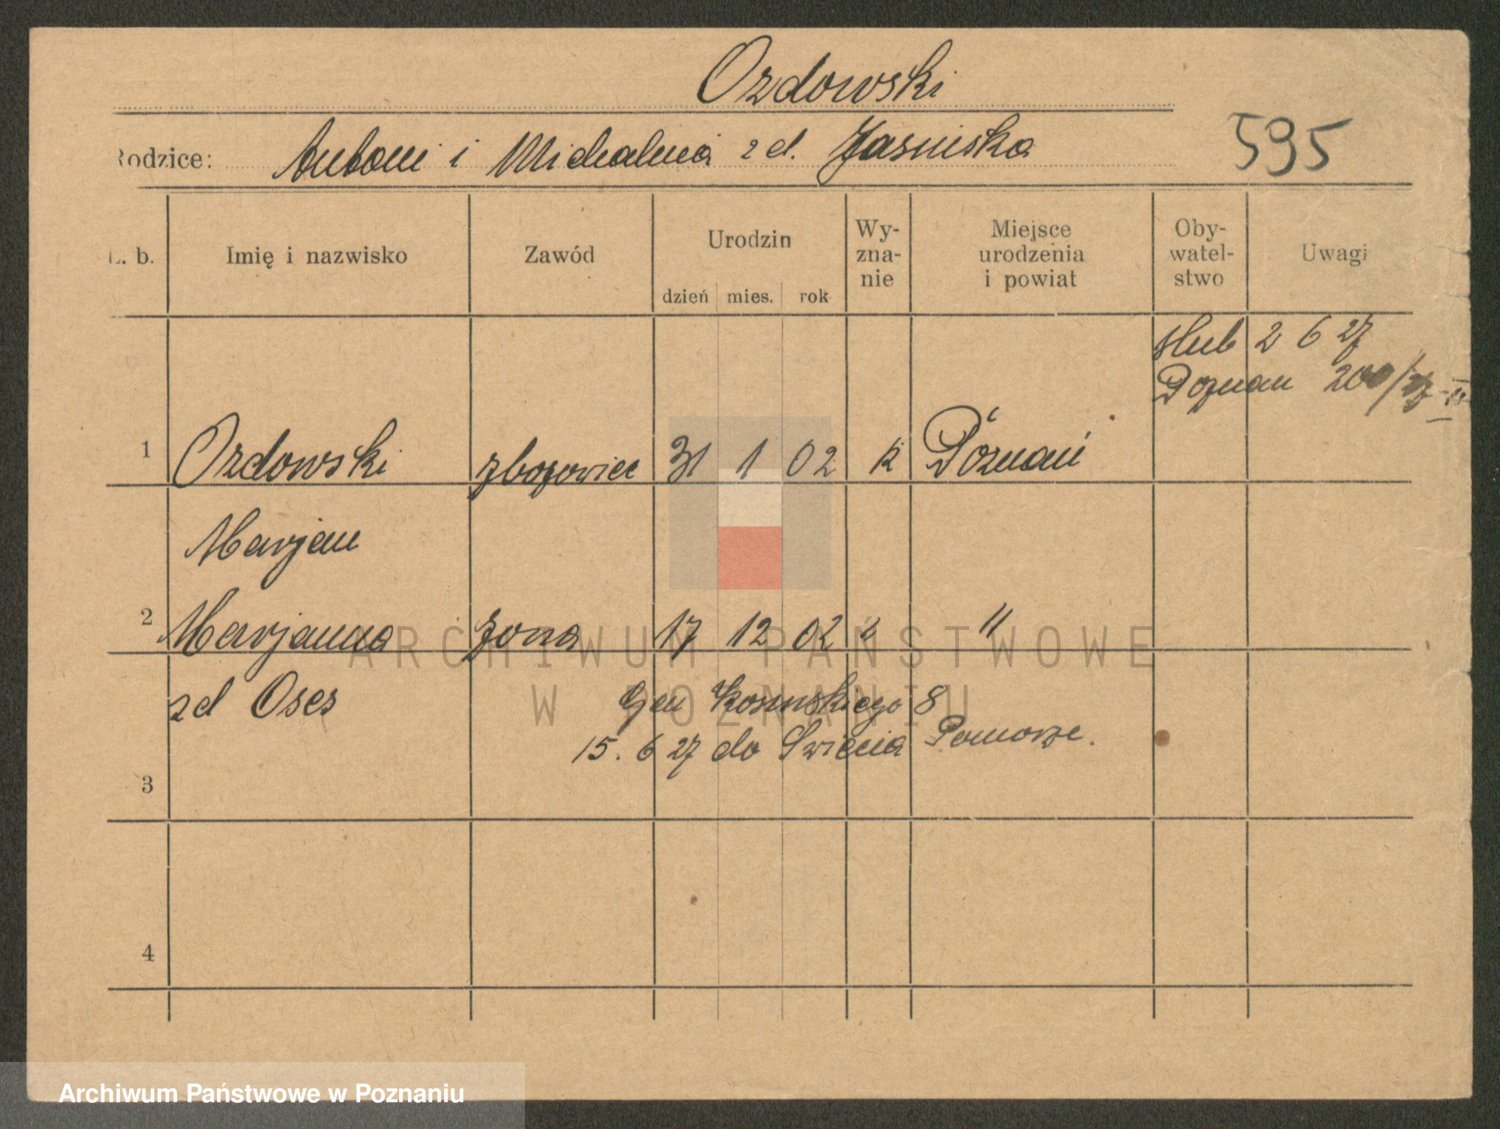 Ozdowski
Rodzice: Antoni i Michalina z d. Jasinska
595
L. b. Imię i nazwisko Zawód Urodzin dzień mies. rok Wy-zna-nie Miejsce urodzenia i powiat Oby-watel-stwo Uwagi
ślub 2 6 27
Poznan
1 Ozdowski zbożowiec 31 1 02 k Poznań
Marjan
2 Marjanna żona 17 12 02 " "
zd Oses
Gen Kosinskiego 8
15. 6 27 do Swiecia Pomorze.
3
4
ARCHIWUM PAŃSTWOWE
W POZNANIU
Archiwum Państwowe w Poznaniu